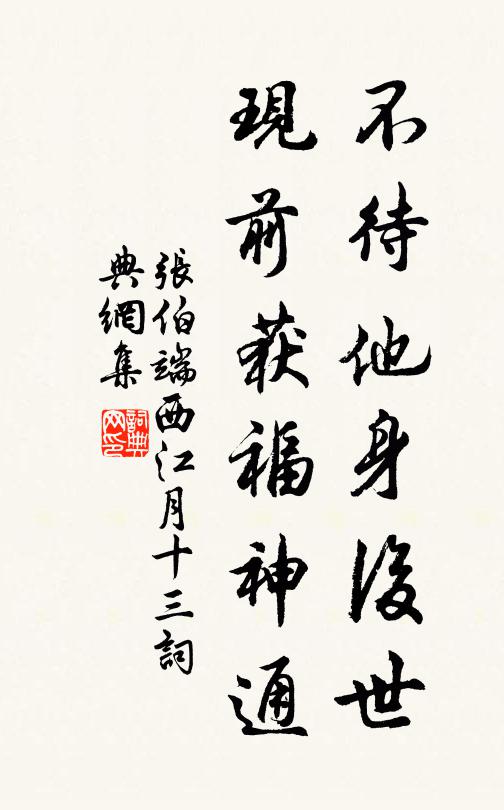 不待他身後世
現前获福神通
張伯端西江月十三詞
典網集
詞典網印